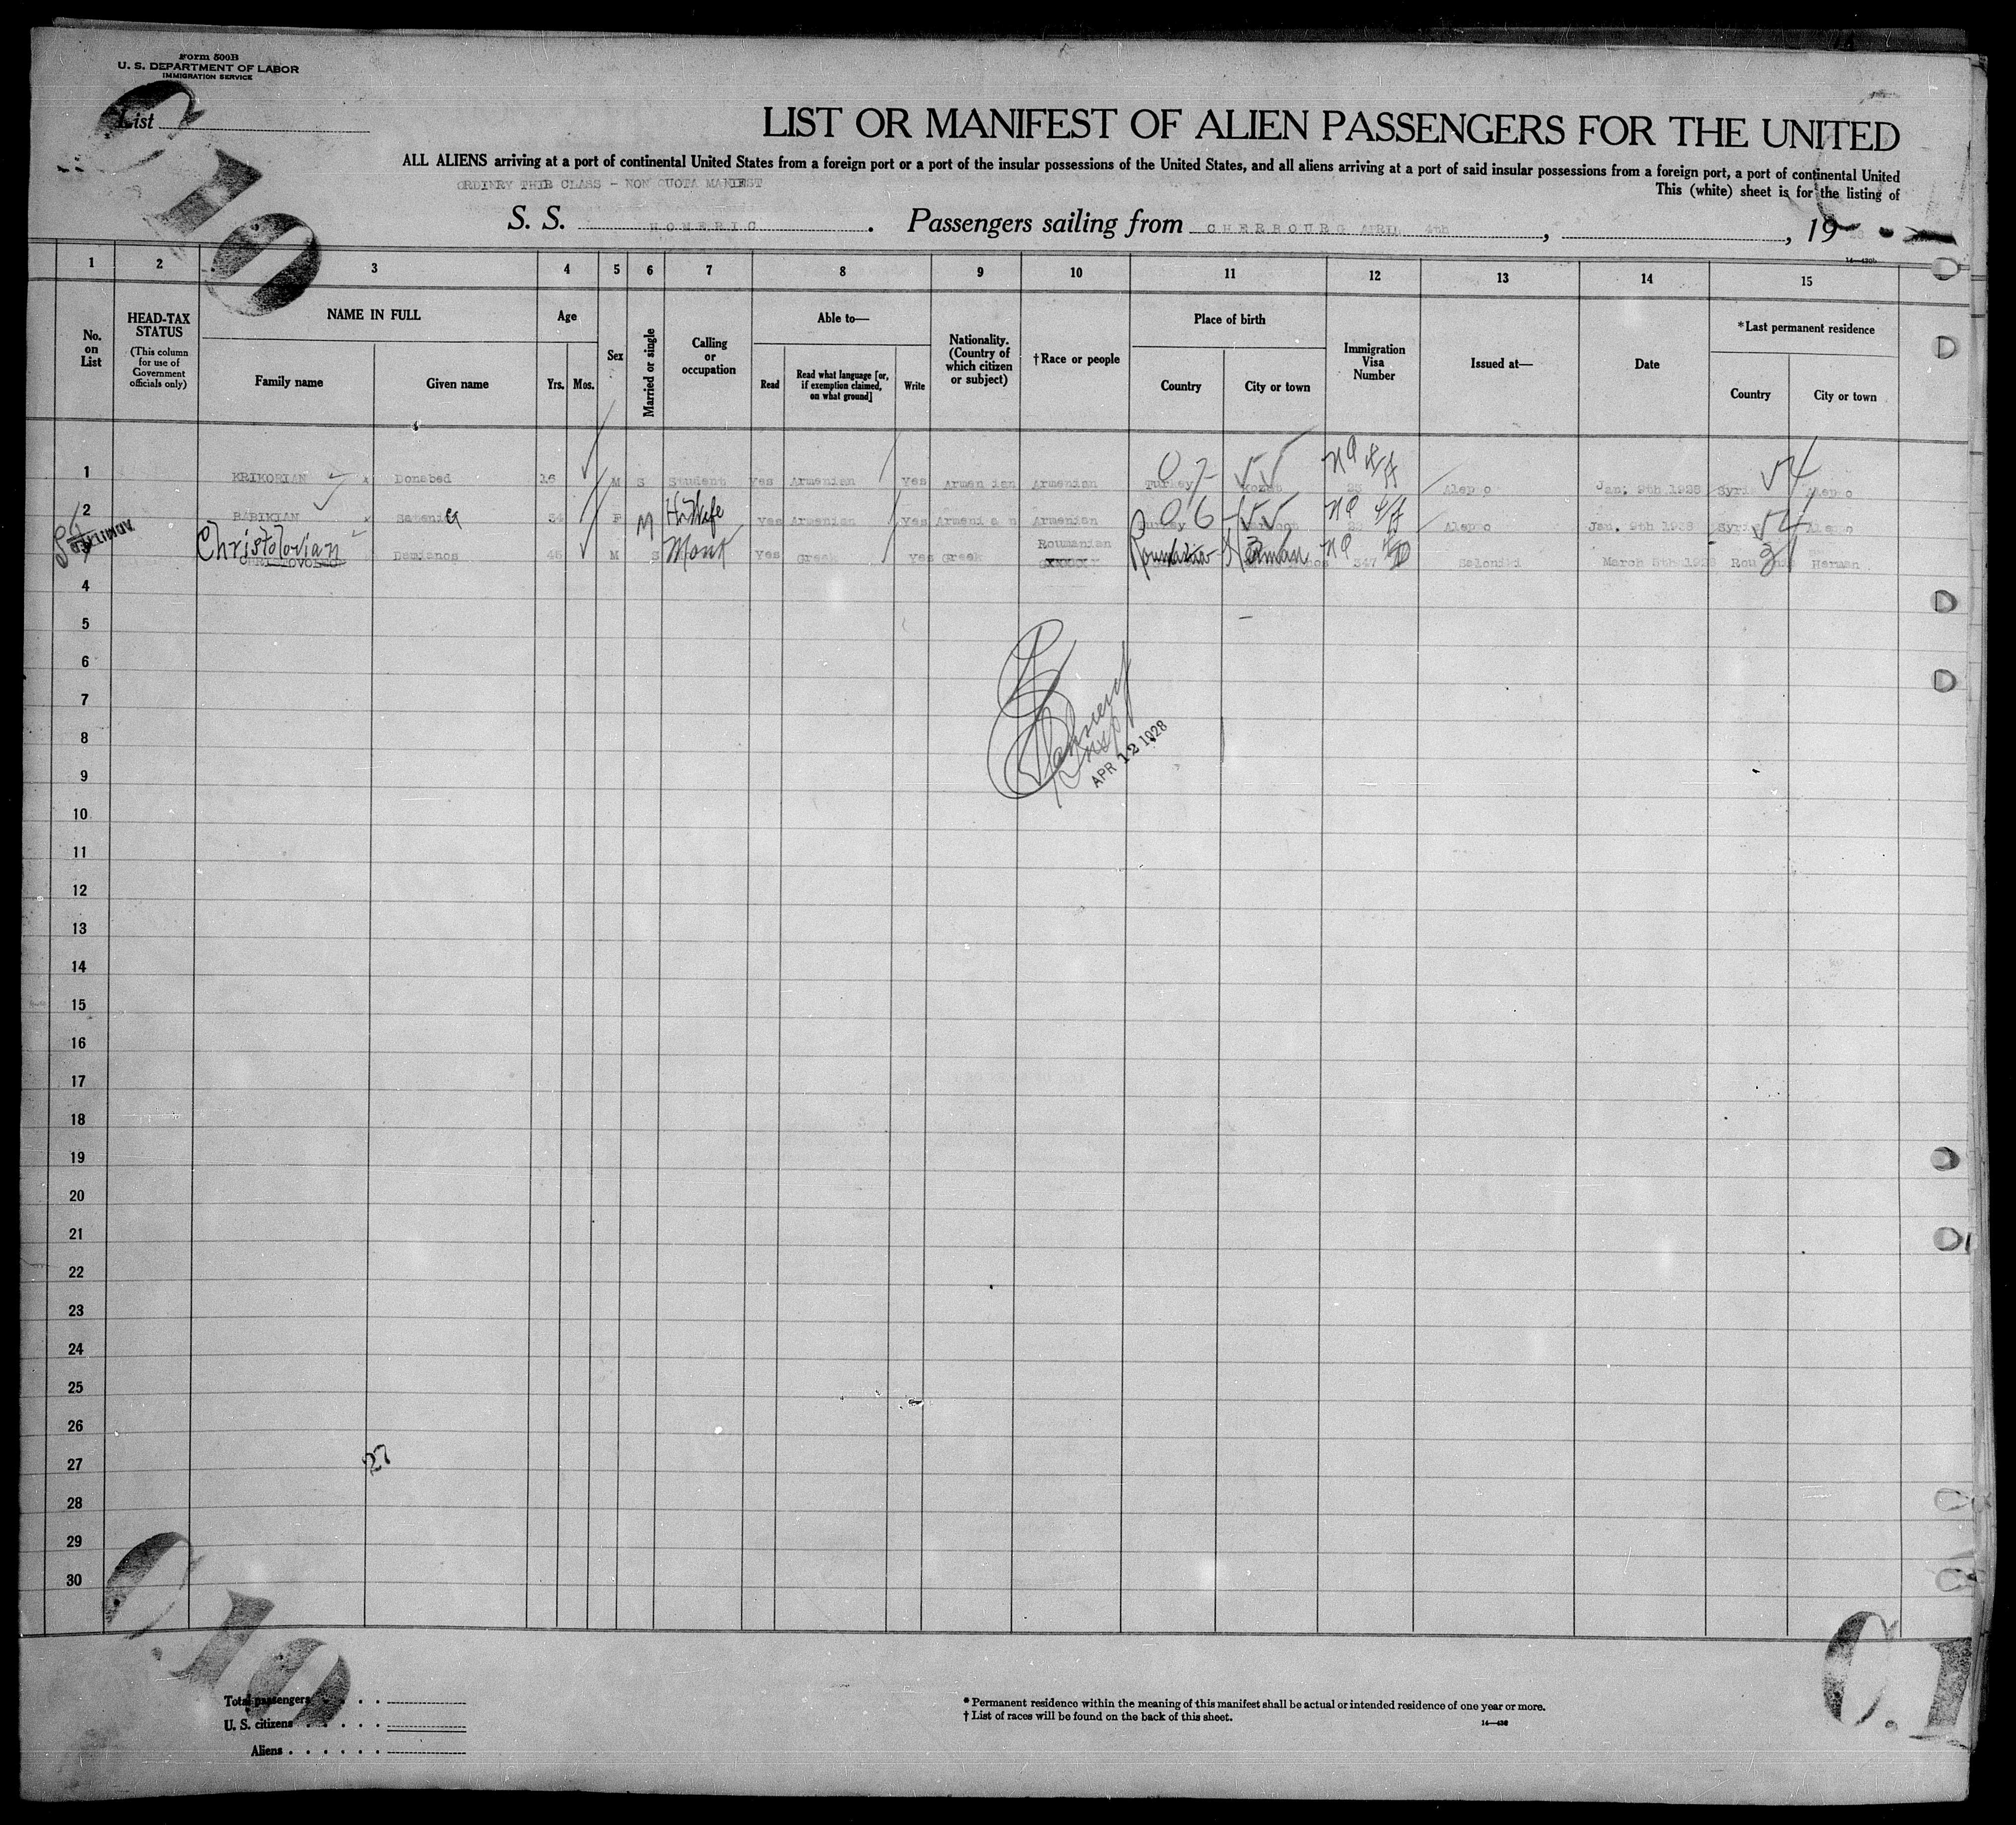 Form 500B
U. S. DEPARTMENT OF LABOR
IMMIGRATION SERVICE
List
C.10
LIST OR MANIFEST OF ALIEN PASSENGERS FOR THE UNITED
ALL ALIENS arriving at a port of continental United States from a foreign port or a port of the insular possessions of the United States, and all aliens arriving at a port of said insular possessions from a foreign port, a port of continental United
ORDINRY THIB CLASS - NON QUOTA MANIEST
This (white) sheet is for the listing of
S. S. HOMERIC. Passengers sailing from CHERBOURG APRIL 4th, , 19
1 2 3 4 5 6 7 8 9 10 11 12 13 14 15
No. on List
HEAD-TAX STATUS
(This column for use of Government officials only)
NAME IN FULL
Family name Given name
Age
Yrs. Mos.
Sex
Married or single
Calling or occupation
Able to—
Read
Read what language [or, if exemption claimed, on what ground]
Write
Nationality. (Country of which citizen or subject)
†Race or people
Place of birth
Country City or town
Immigration Visa Number
Issued at—
Date
*Last permanent residence
Country City or town
1 KRIKORIAN Donabed 16 M S Student Yes Armenian Yes Armenian Armenian Turkey 07 VV Aleppo Jan. 9th 1928 Syria Aleppo
2 BABIKIAN 34 F M HsWife Yes Armenian Yes Armenian Armenian 06 VV Aleppo Jan. 9th 1928 Syria Aleppo
ADMITTED
3 Christolovian Damianos 45 M S Monk Yes Greek Yes Greek Roumanian Roumania Herman 347 Saloniki March 5th 1928 Herman
4
5
6
7
8
9
10
11
12
13
14
15
16
17
18
19
20
21
22
23
24
25
26
27
28
29
30
Insp
APR 12 1928
27
C.10
C.1
Total passengers
U. S. citizens
Aliens
* Permanent residence within the meaning of this manifest shall be actual or intended residence of one year or more.
† List of races will be found on the back of this sheet.
14—430